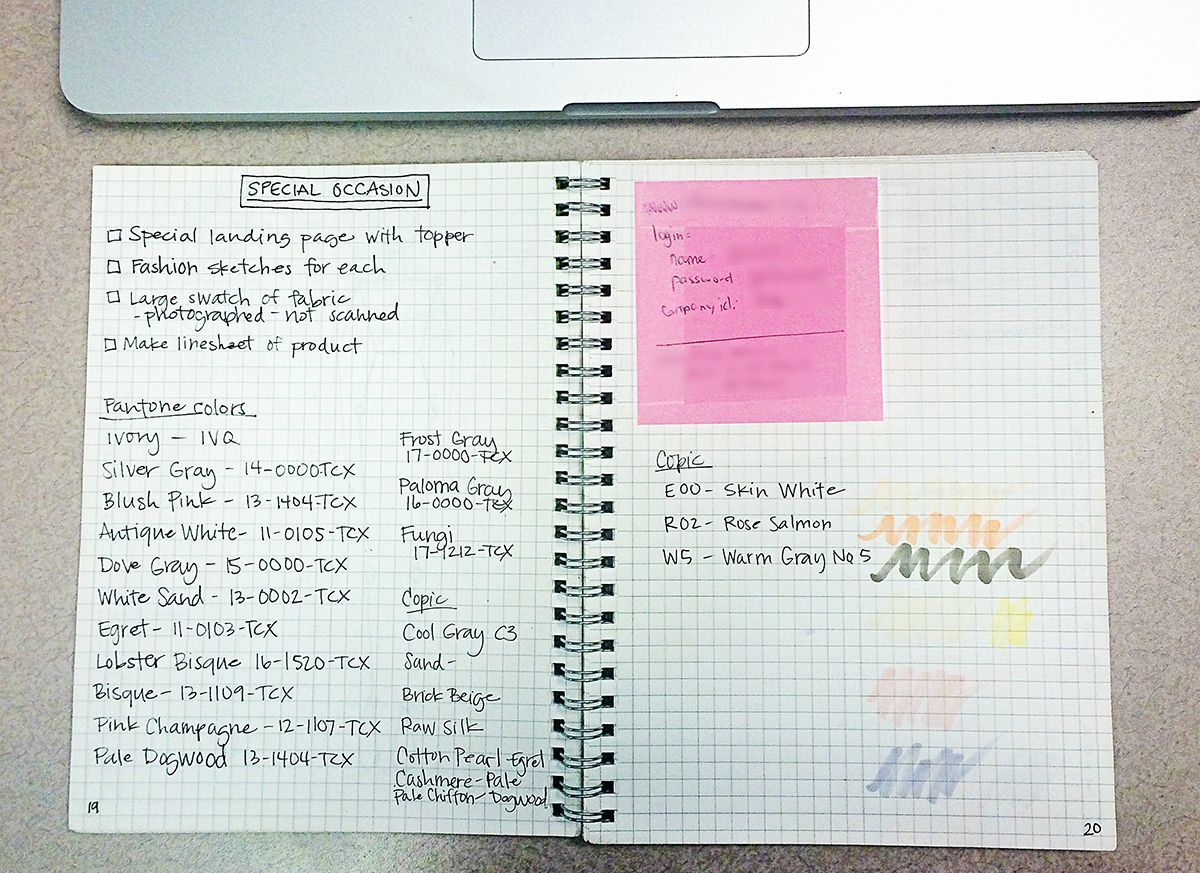 SPECIAL OCCASION
Special landing page with topper
Fashion sketches for each
Large swatch of fabric
- photographed - not scanned
Make linesheet of product
Pantone colors
Ivory - IVQ
Silver Gray - 14-0000TCX
Blush Pink - 13-1404-TCX
Antique White- 11-0105-TCX
Dove Gray - 15-0000-TCX
White Sand - 13-0002-TCX
Egret- 11-0103-TCX
Lobster Bisque 16-1520-TCX
Bisque- 13-1109-TCX
Pink Champagne - 12-1107-TCX
Pale Dogwood 13-1404-TCX
19
Frost Gray
17-0000-TCX
Paloma Gray
16-0000-TCX
Fungi
17-1212-TCX
Copic
Cool Gray C3
Sand-
Brick Beige
Raw Silk
Cotton Pearl-Egret
Cashmere-Pale
Pale Chiffon- Dogwood
www
login=
name
password
company id:
Copic
E00- Skin White
R02- Rose Salmon
W5 - Warm Gray No 5
20